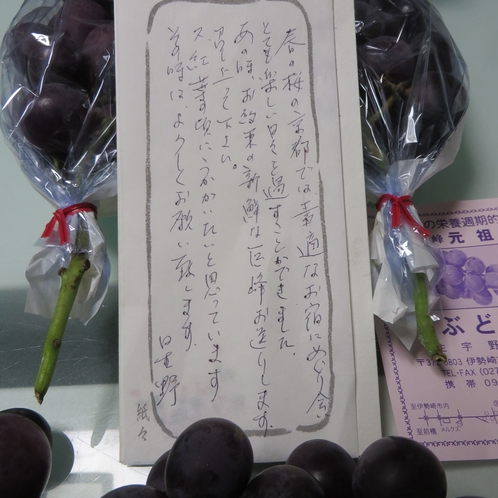 春の桜の京都では素適なお宿にめぐり会
とても楽しい日々を過すことができました。
あの時お約束の新鮮な巨峰お送りします。
召し上って下さい。
又紅葉の頃にうかがいたいと思っています
その時は、よろしくお願い致します。
日里野
の栄養週期的
元祖
ぶど
宇野
伊勢崎
TEL・FAX (027
携帯 09
至伊勢崎市内
至前橋 メルクス